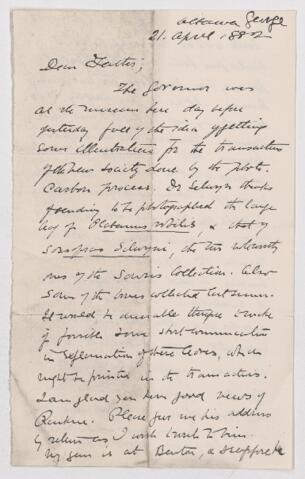 Ottawa George
21. April 1882
Dear Father;
The Governor was
at the museum here day before
yesterday full of the idea of getting
some illustrations for the transactions
of the new society done by the photo-
Carbon process. Dr Selwyn thinks
of sending to be photographed the large
leaf of Platanus nobilis, & that of
Sassafras Selwyni, the two
ones of the Souris Collection. Also
some of the bones collected last summer.
It would be a desirable thing to make
if possible some short communication
in explanation of these leaves, which
might be printed in the transactions.
I am glad you have good news of
Rankine. Please give me his address
by return as I wish to write to him.
My gun is at Benton, a